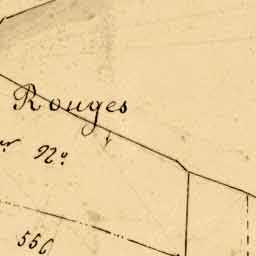 Rouges
92.°
556